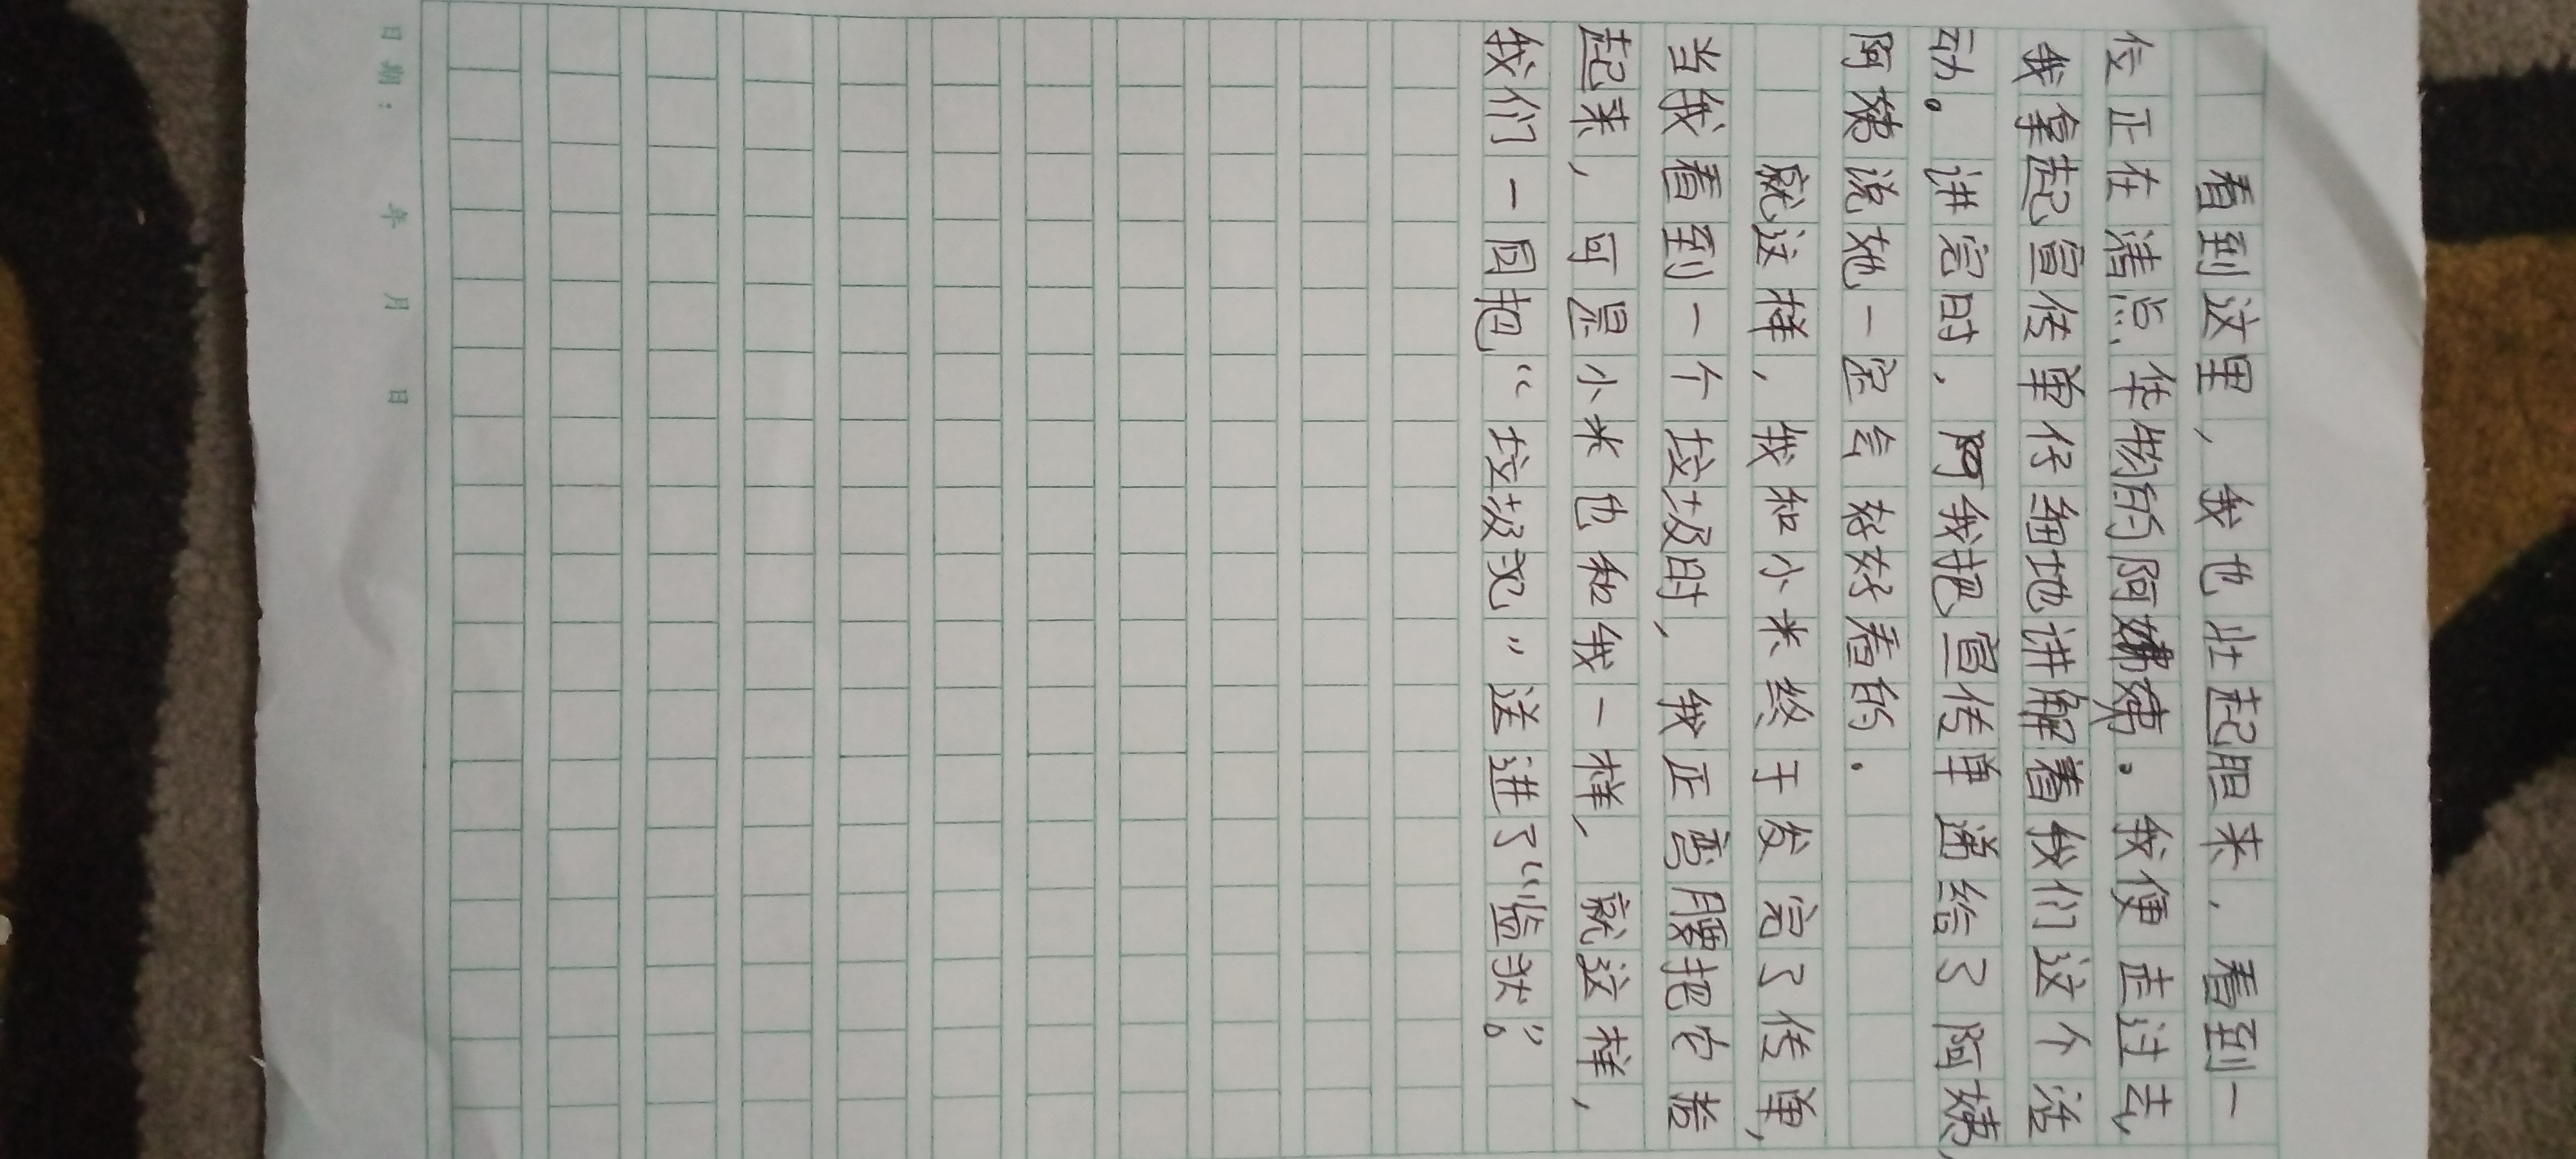 看到这里，我也壮起胆来，看到一
位正在清点货物的阿姨。我便走过去，
我拿起宣传单仔细地讲解着我们这个活
动。讲完时，阿我把宣传单递给了阿姨，
阿姨说她一定会好好看的.
就这样，我和小米终于发完了传单，
当我看到一个垃圾时，我正弯腰把它捡
起来，可是小米也和我一样，就这样，
我们一同把“垃圾犯”送进了“监狱”。
日期： 年 月 日